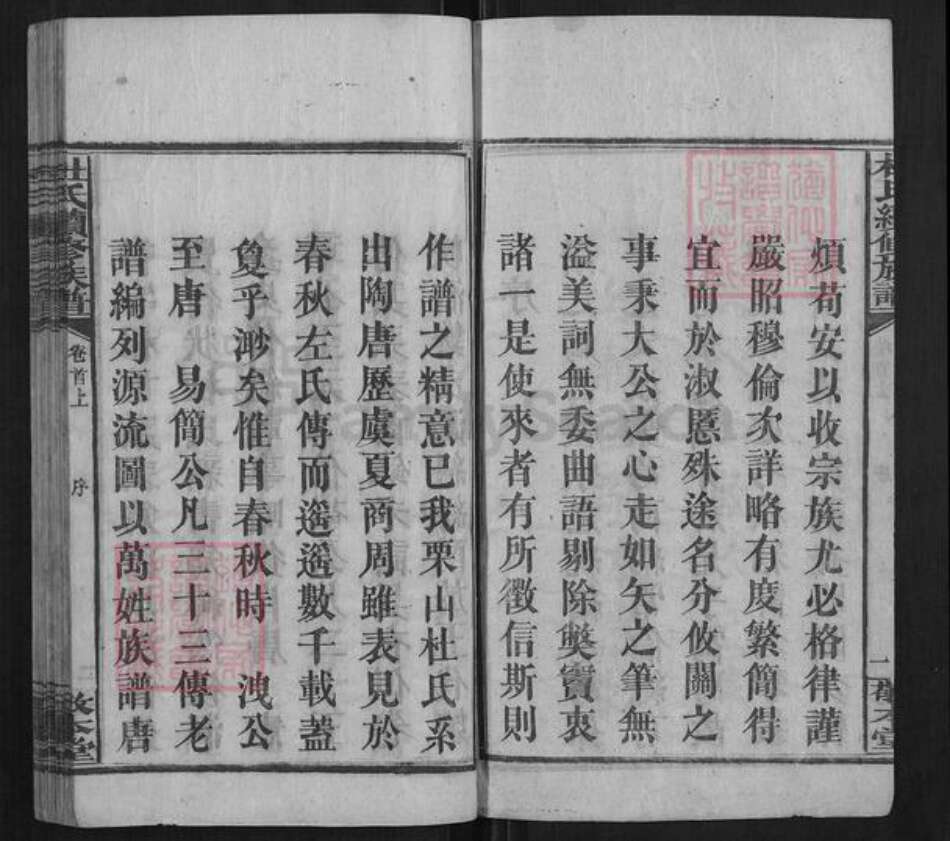 煩苟安以收宗族尤必格律謹
嚴昭穆倫次詳略有度繁簡得
宜而於淑慝殊途名分攸關之
事秉大公之心走如矢之筆無
溢美詞無委曲語剔除獘竇衷
諸一是使來者有所徵信斯則
作譜之精意已我栗山杜氏系
出陶唐歷虞夏商周雖表見於
春秋左氏傳而遥遥數千載蓋
敻乎渺矣惟自春秋時 洩公
至唐 易簡公凡三十三傳老
譜編列源流圖以萬姓族譜唐
杜氏續修族譜 卷首上 序 二